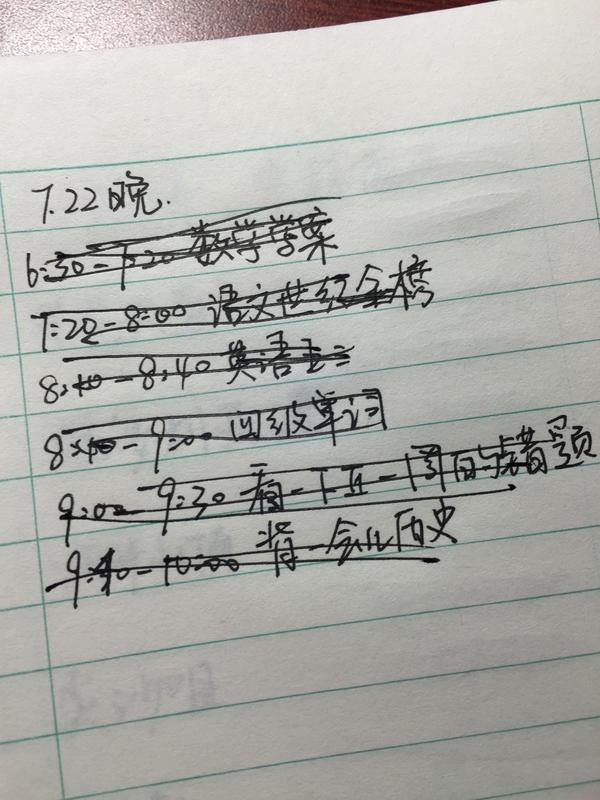 7.22晚.
6:30-7:20 数学学案
7:20-8:00 语文世纪金榜
8:10-8:40 英语
8:40-9:00 四级单词
9:00-9:30 看一下五一 周自 错题
9:40-10:00 背一会儿历史